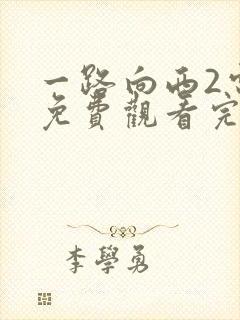 一路向西2
免費觀看完
李學勇